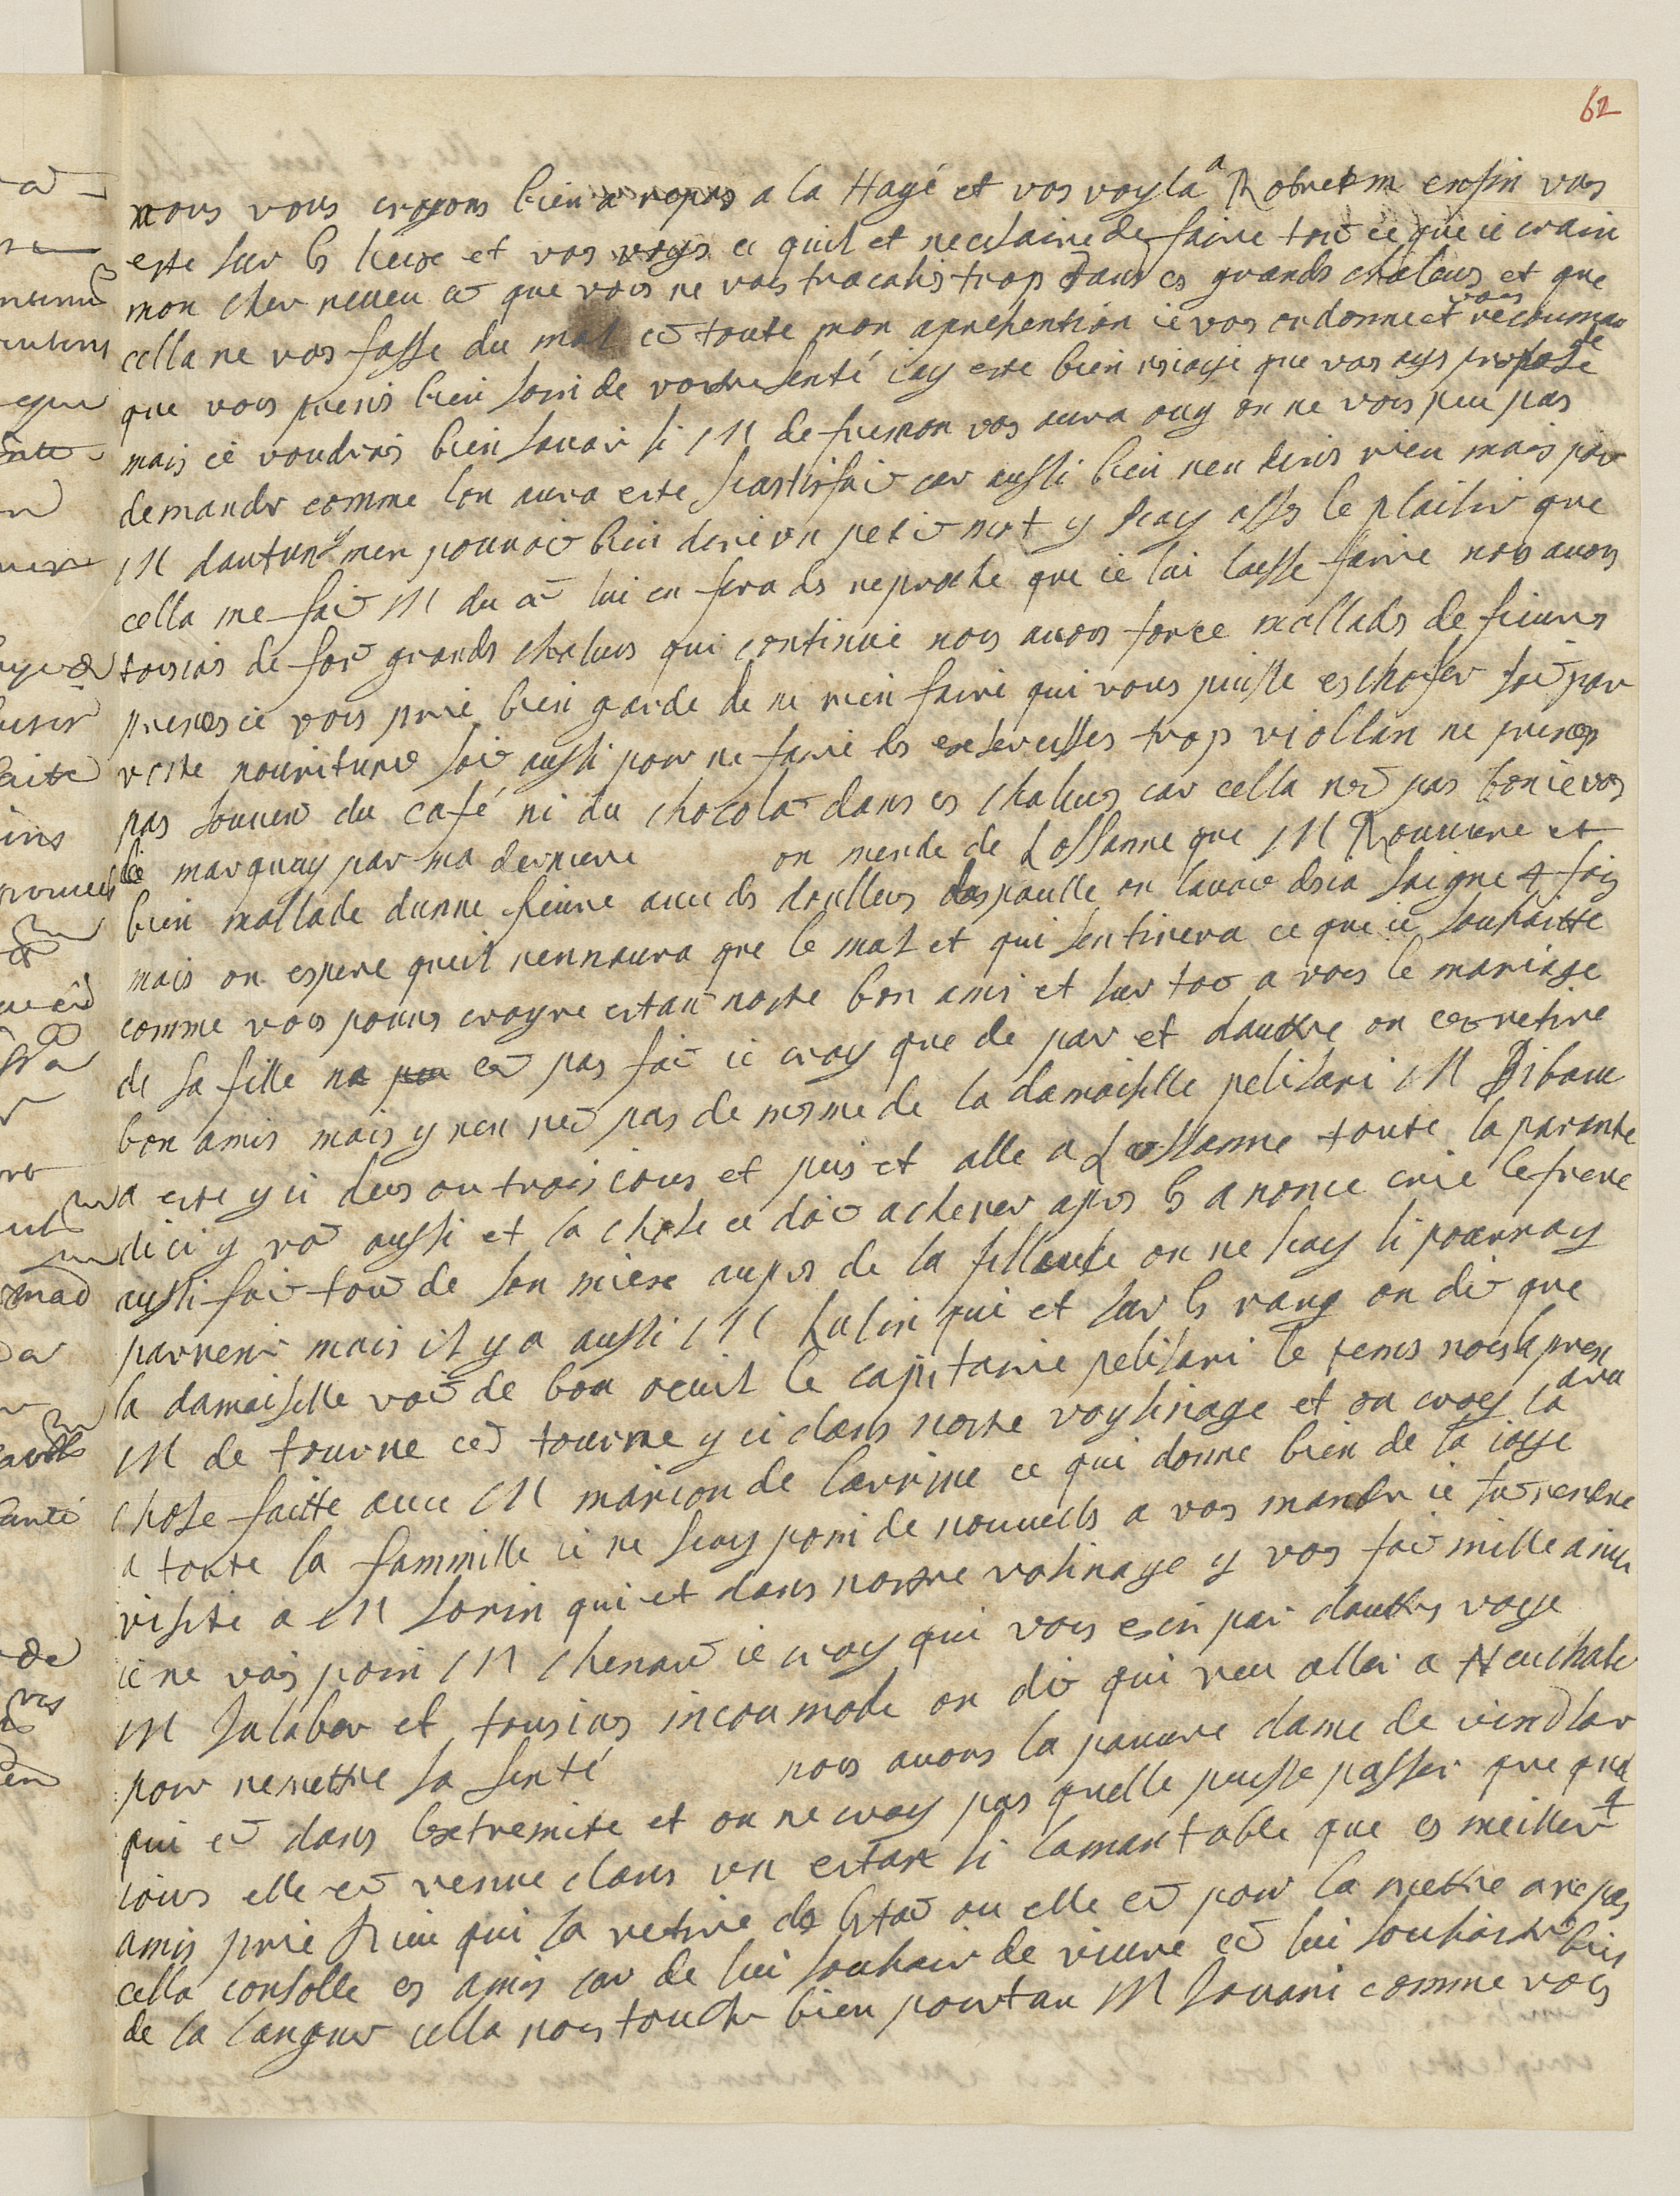 62
nous vous croyons bien a repos a la Hayé et vos voyla a Robretm enfin vos
este sur ls lieux et vos voys ce quil et necesaire de faire tou ce que ie crain
mon cher neueu cē que vous ne vous tracahis trop dans es grands chaleurs et que
cella ne vos fasse du mal cē toute mon aprehention ie vos ordonne et vous recouman
que vous prenis bien soin de vostre senté iay este bien reioyi que vos ays propose
mais ie voudrois bien sauoir si M de fremon vos aura ouy on ne vois peu pas
demander comme lon aura este scastisfai car aussi bien nen diris rien mais pour
M dautun men pouroi bien dire un petit mot y scay asses le plaisir que
cella me fai M du cē lui en fera ds reproche que ie lui laisse faire nous auons
tousiours de for grands chaleurs qui continue nous auons force mallads de fieures
prenes ie vous prie bien garde de ne rien faire qui vous puisse eschofer soi par
vostre nouriture soi aussi pour ne faire ds exsersisses trop viollan ne prenes
pas souuen du café ni du chocola dans es chaleurs car cella nē pas bon ie vos
le marquay par ma derniere on mende de Lossanne que M Rouuiere et
bien mallade dunne fieure auec ds doulleurs despaulle on lauoi desia saigne 4 fois
mais on espere queil nennaura que le mal et qui sentirera ce que ie souhaitte
comme vous pouues croyre estan nostre bon amis et sur tou a vous le mariage
de sa fille na peu cē pas fai ie croy que de par et dauttre on ce retire
bon amis mais y nen nē pas de mesme de la damaiselle pelisari M Diboue
a este y ci deus ou trois iours et puis et alle a Lossanne toute la parante
dici y vō aussi et la chose ce doi acheuer apres ls anonce crie le frere
aussi fai tou de son mieux aupres de la filleule on ne scay si pourray
parvenir mais il y a aussi M Lulin qui et sur ls rang on di que
la damaiselle voi de bon oeuil le capitaine pelisari le tems nous lapren
dra
M de tourne cē tourne y ci dans nostre voysinage et on croy la
chose faitte auec M marion de larrine ce qui donne bien de la ioye
a toute la fammille ie ne scay poin de nouuells a vos mander ie fu rendre
visite a M Sorin qui et dans nostre vosinage y vos fai mille amities
ie ne vois poin M Chenau ie croy qui vous escri par dauttres voye
M Jalaber et tousious incoumode on di qui veu aller a Neuchate
pour remettre sa senté nous auons la pauure dame de vindlar
qui cē dans lextremite et on ne croy pas quelle puisse passer que quel q
iours elle cē venue dans un estan si lamantable que es meilleur
amis prie Dieu qui la retire de lestat ou elle cē pour la mettre an repos
cella consolle es amis car de lui souhair de viure cē lui souhaiter bien
de la langeur cella nous touche bien pourtan M Souani comme vous